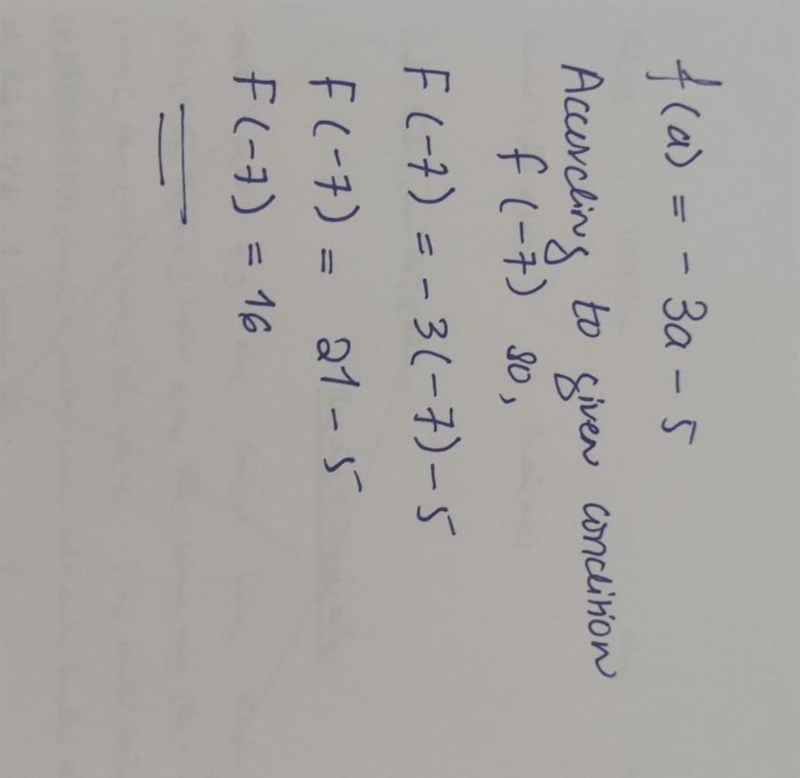 f(a) = -3a - 5
According to given condition
f(-7) so,
F(-7) = -3(-7) - 5
F(-7) = 21 - 5
F(-7) = 16